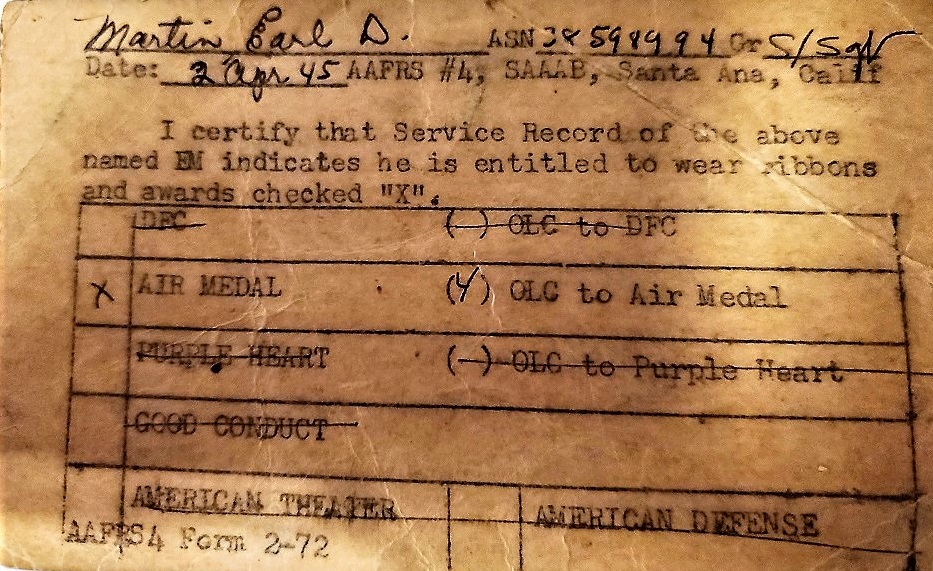 Martin Earl D. ASN 38598994 Gr S/Sgt
Date: 2 Apr 45 AAFRS #4, SAAAB, Santa Ana, Calif
I certify that Service Record of the above
named EM indicates he is entitled to wear ribbons
and awards checked "X".
DFC (—) OLC to DFC
X AIR MEDAL (4) OLC to Air Medal
PURPLE HEART (—) OLC to Purple Heart
GOOD CONDUCT
AMERICAN THEATER AMERICAN DEFENSE
AAFRS4 Form 2-72